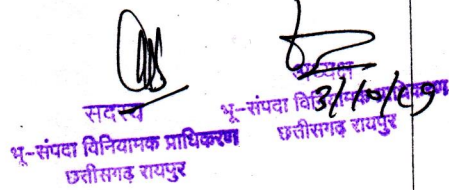 सदस्य
भू-संपदा विनियामक प्राधिकरण
छत्तीसगढ़ रायपुर
अध्यक्ष
भू-संपदा विनियामक प्राधिकरण
छत्तीसगढ़ रायपुर
3/10/19